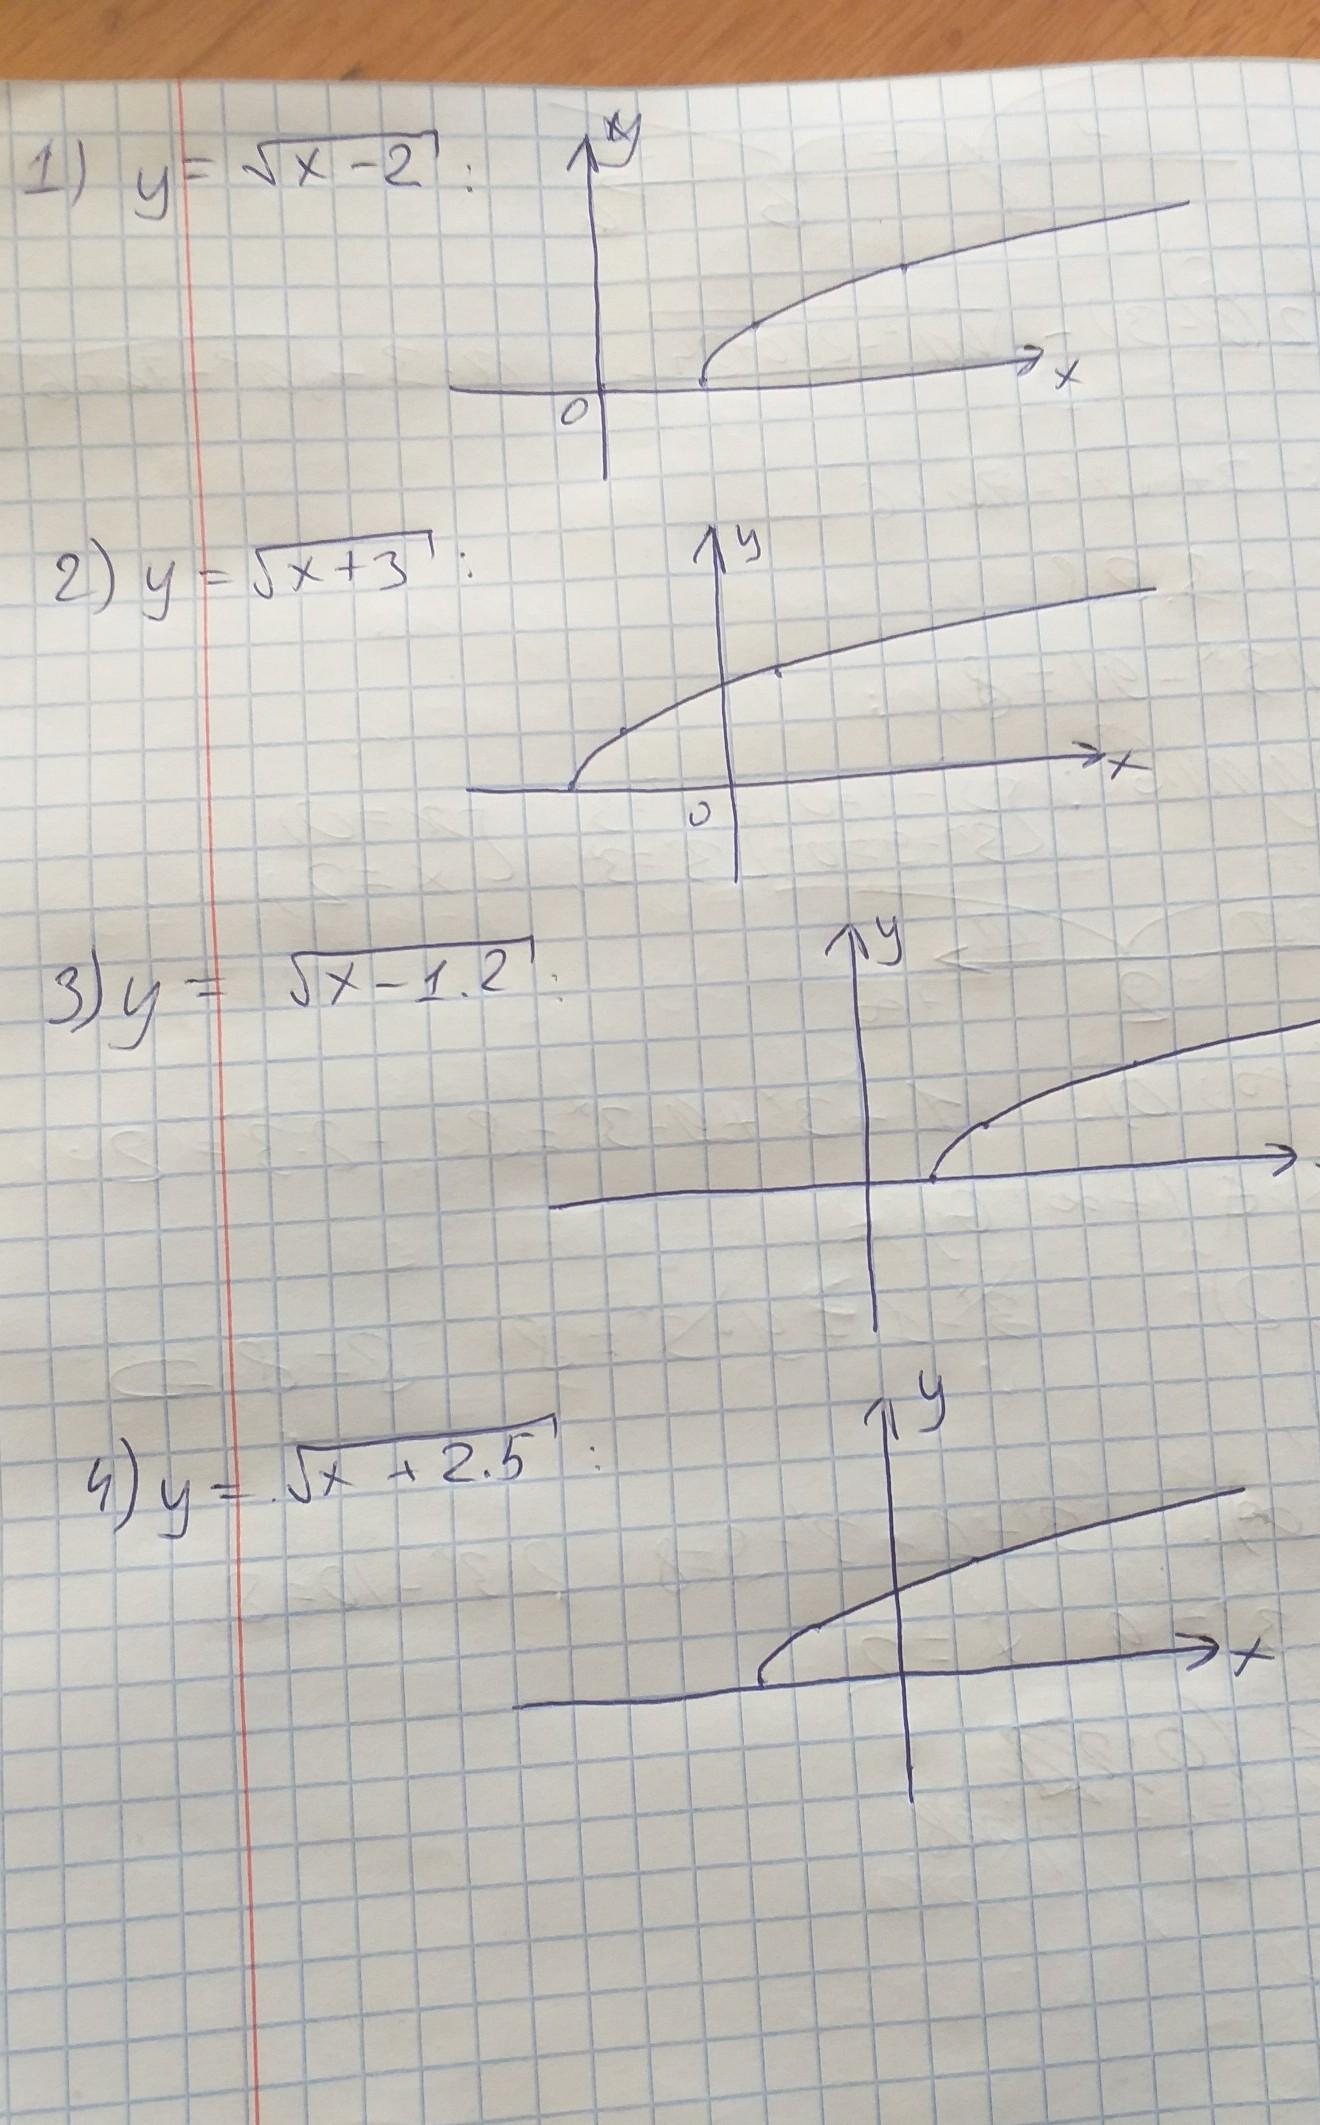 1) y = √x - 2 :
y
x
0
2) y = √x + 3 :
y
x
0
3) y = √x - 1.2 :
y
4) y = √x + 2.5 :
y
x